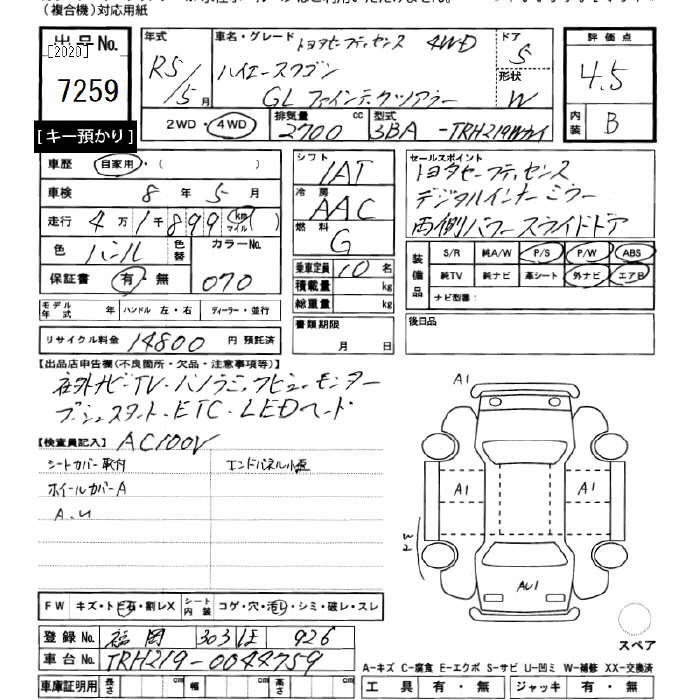 (複合機)対応用紙
出品No.
[2020]
7259
[キー預かり]
年式 R5/5月
車名・グレード トヨタセーフティセンス 4WD
ハイエースワゴン
GL ファインテックツアラー
ドア 5
形状 W
評価点
4.5
内装 B
2WD・4WD 排気量 2700 cc 型式 3BA-TRH219W
車歴 自家用・( )
車検 8年 5月
走行 4万1千899 km マイル
色 パール 色替 カラーNo. 070
保証書 有・無
モデル年式 年 ハンドル 左・右 ディーラー・並行
リサイクル料金 14800 円 預託済
シフト IAT
冷房 AAC
燃料 G
乗車定員 10 名
積載量 kg
総重量 kg
書類期限 月 日
セールスポイント
トヨタセーフティセンス
デジタルインナーミラー
両側パワースライドドア
装備品 S/R 純A/W P/S P/W ABS
純TV 純ナビ 革シート 外ナビ エアB
ナビ型番:
後日品
【出品店申告欄(不良箇所・欠品・注意事項等)】
社外ナビ・TV・パノラミックビューモニター
プッシュスタート・ETC・LEDヘッド
AC100V
【検査員記入】
シートカバー取付 エンドパネル小歪
ホイールカバーA
A.U
A1
A1
A1
W2
AU1
スペア
FW キズ・トビ石・割レX シート内装 コゲ・穴・汚レ・シミ・破レ・スレ
登録No. 福岡 303 ほ 926
車台No. TRH219-0044759
車庫証明用 長さ cm 幅 cm 高さ cm
A-キズ C-腐食 E-エクボ S-サビ U-凹ミ W-補修 XX-交換済
工具 有・無 ジャッキ 有・無